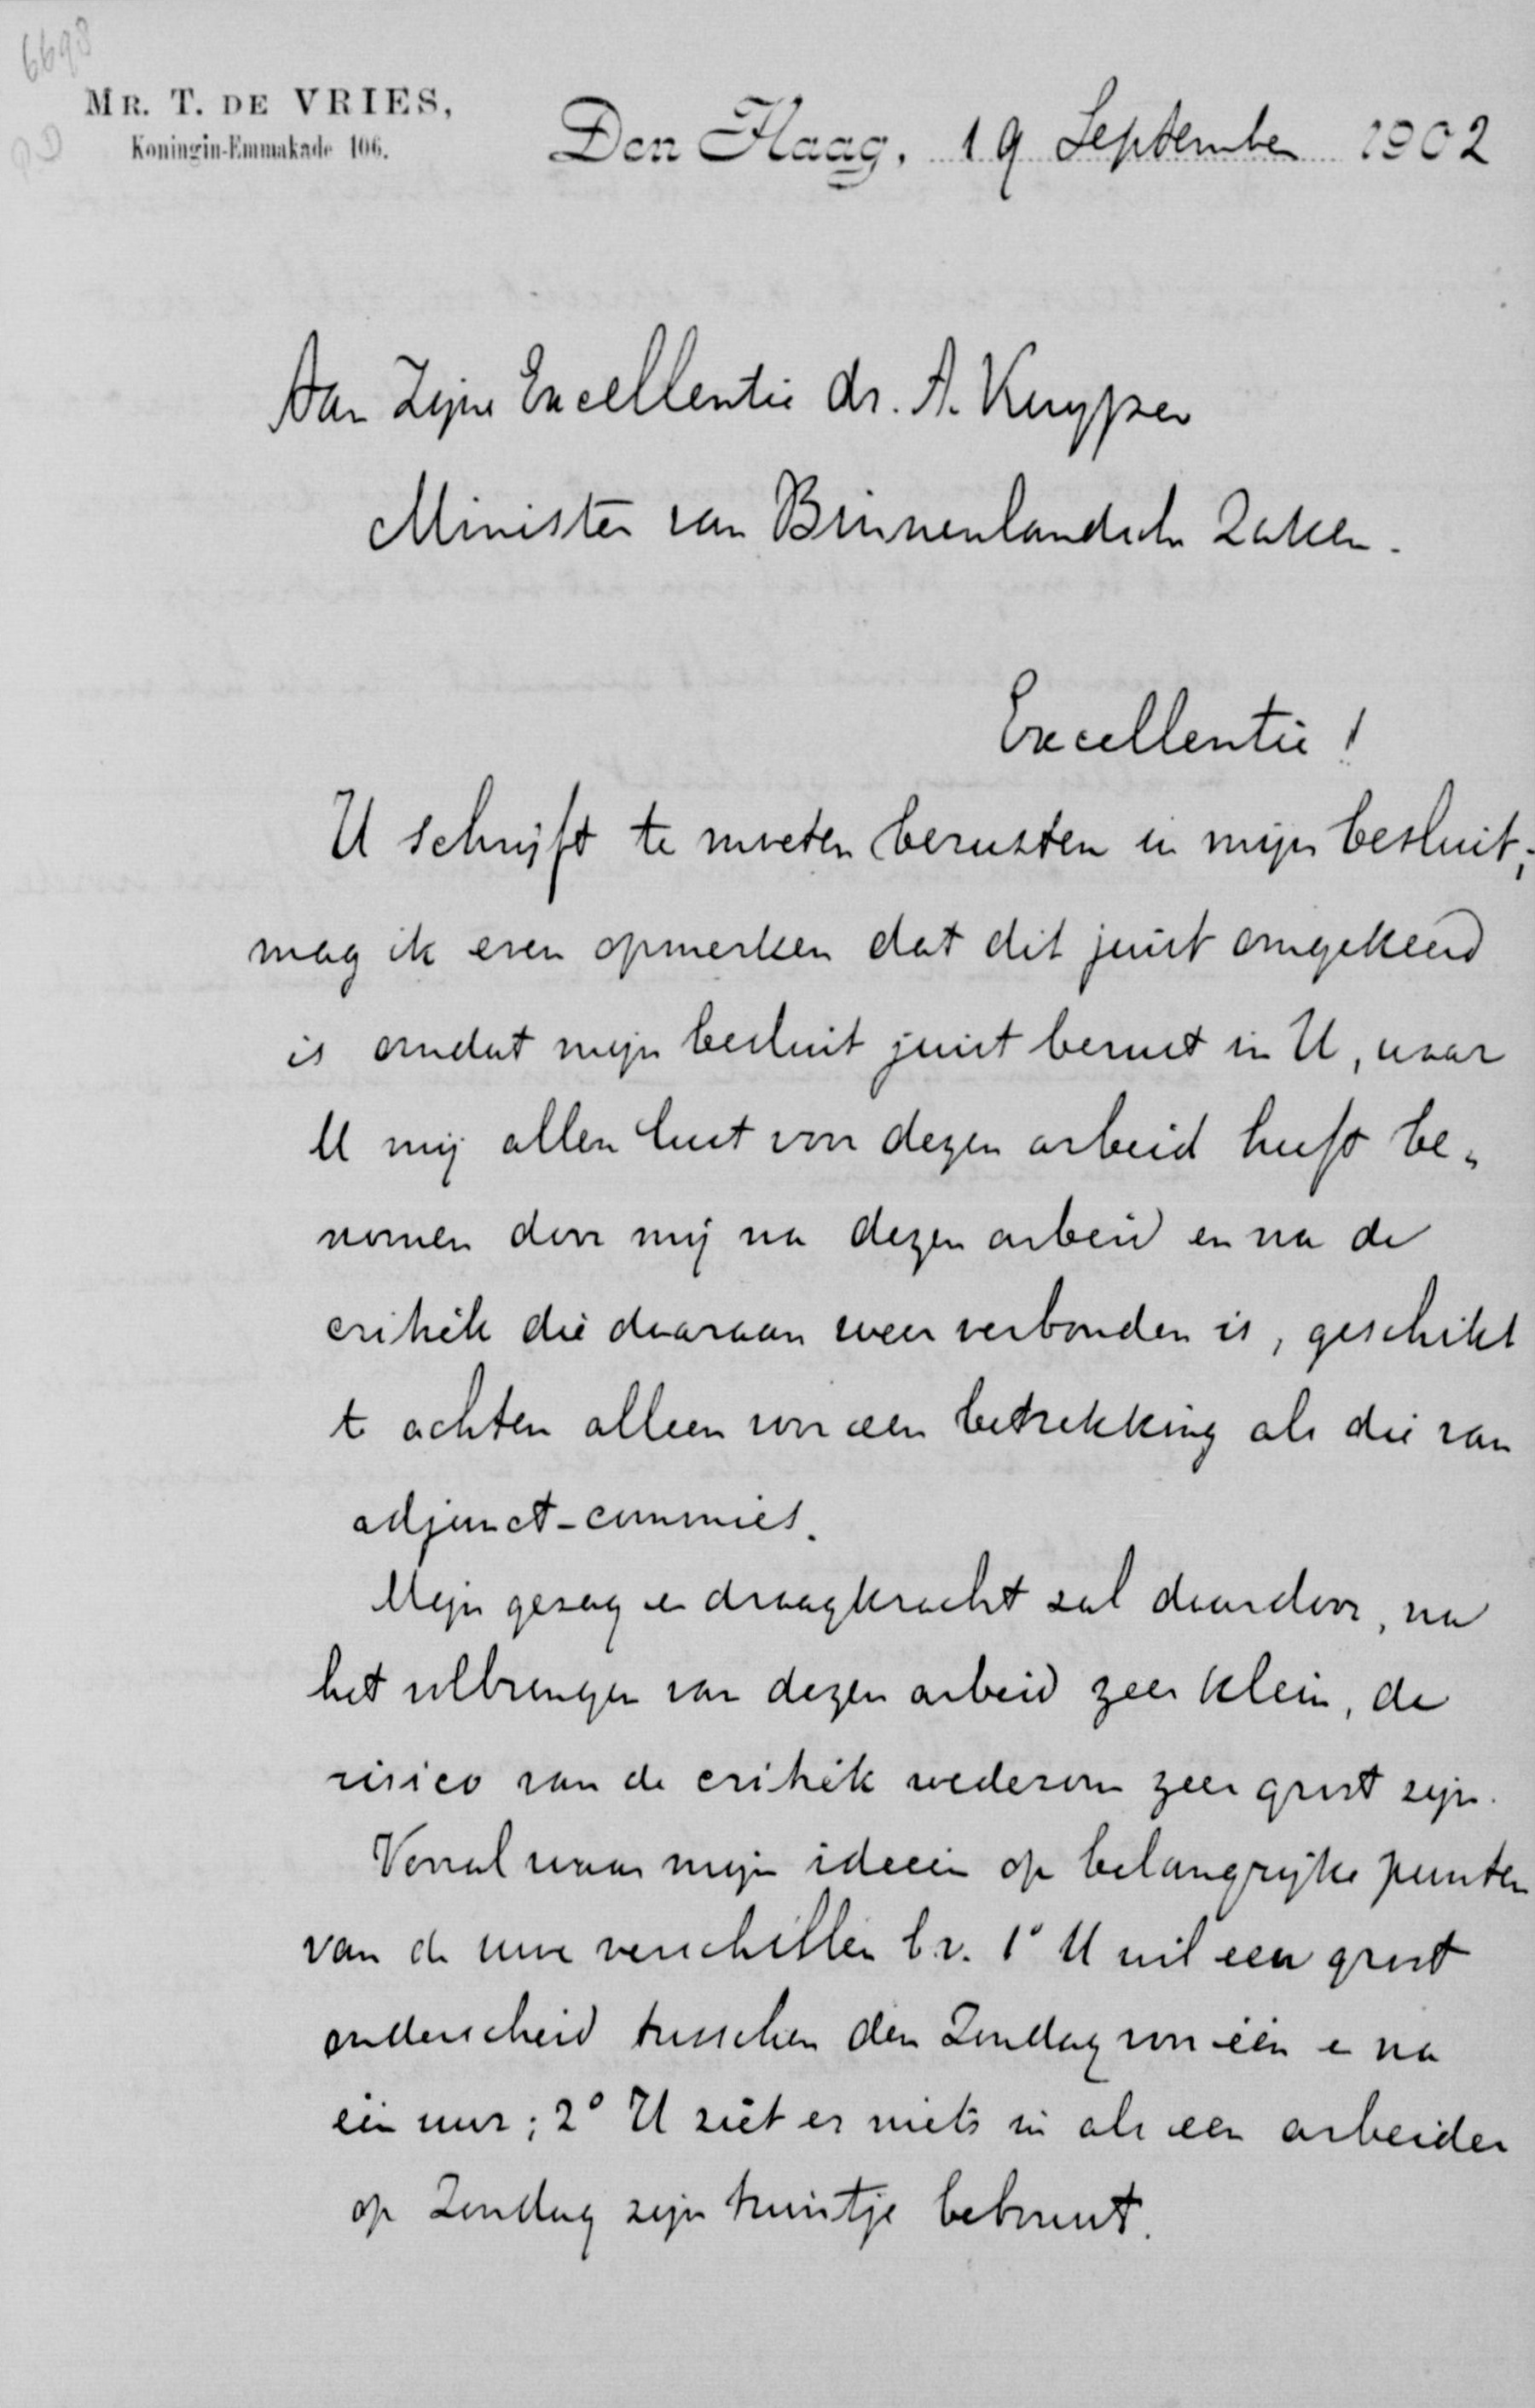 6698
MR. T. DE VRIES,
Koningin-Emmakade 106.
Den Haag, 19 September 1902
Aan Zijne Excellentie dr. A. Kuyper
Minister van Binnenlandsche Zaken.
Excellentie!
U schrijft te moeten berusten in mijn besluit;
mag ik even opmerken dat dit juist omgekeerd
is omdat mijn besluit juist berust in U, waar
U mij allen lust voor dezen arbeid heeft be-
nomen door mij na dezen arbeid en na de
critiek die daaraan weer verbonden is, geschikt
te achten alleen voor een betrekking als die van
adjunct-commies.
Mijn gezag en draagkracht zal daardoor, na
het volbrengen van dezen arbeid zeer klein, de
risico van de critiek wederom zeer groot zijn.
Vooral waar mijn ideeën op belangrijke punten
van de uwe verschillen b.v. 1° U wil een groot
onderscheid tusschen den Zondag voor één en na
één uur; 2° U ziet er niets in als een arbeider
op Zondag zijn tuintje bebouwt.